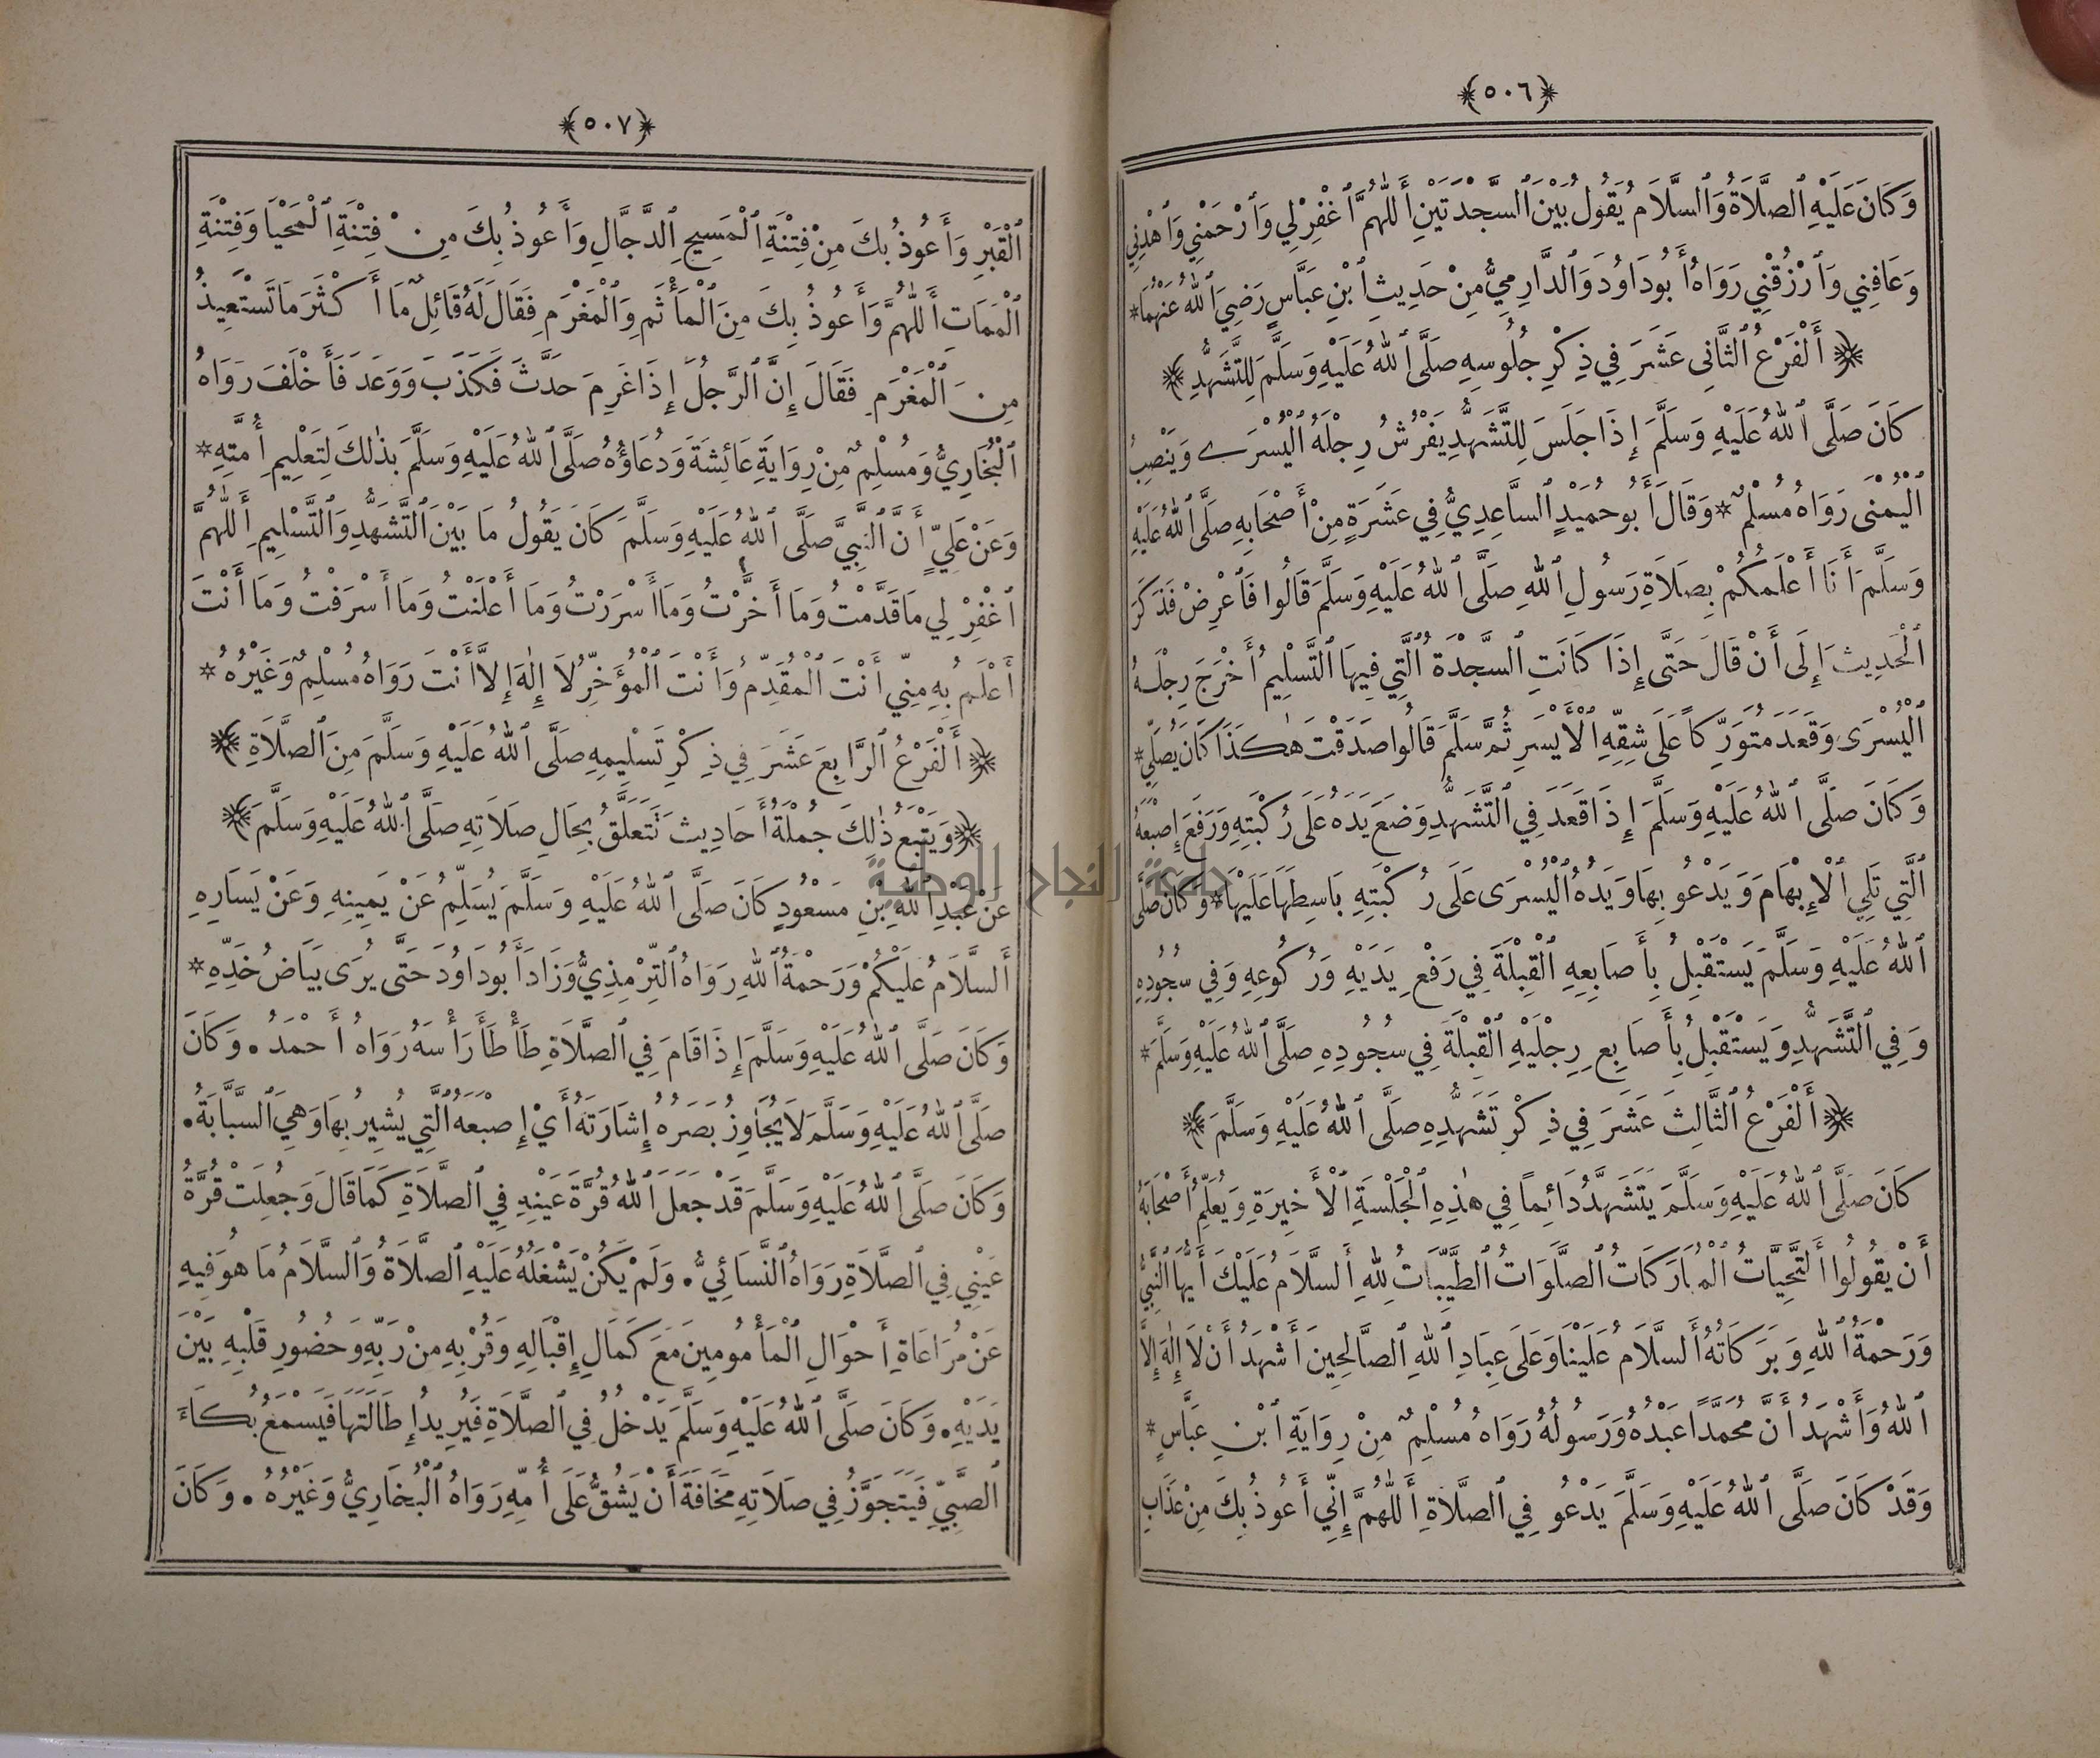 ﴿٥٠٦﴾
وَكَانَ عَلَيْهِ ٱلصَّلَاةُ وَٱلسَّلَامُ يَقُولُ بَيْنَ ٱلسَّجْدَتَيْنِ أَللّٰهُمَّ ٱغْفِرْ لِي وَٱرْحَمْنِي وَٱهْدِنِي
وَعَافِنِي وَٱرْزُقْنِي رَوَاهُ أَبُو دَاوُدَ وَٱلدَّارِمِيُّ مِنْ حَدِيثِ ٱبْنِ عَبَّاسٍ رَضِيَ ٱللهُ عَنْهُمَا *
﴿ أَلْفَرْعُ ٱلثَّانِى عَشَرَ فِي ذِكْرِ جُلُوسِهِ صَلَّى ٱللهُ عَلَيْهِ وَسَلَّمَ لِلتَّشَهُّدِ ﴾
كَانَ صَلَّى ٱللهُ عَلَيْهِ وَسَلَّمَ إِذَا جَلَسَ لِلتَّشَهُّدِ يَفْرُشُ رِجْلَهُ ٱلْيُسْرَى وَيَنْصِبُ
ٱلْيُمْنَى رَوَاهُ مُسْلِمٌ * وَقَالَ أَبُو حُمَيْدٍ ٱلسَّاعِدِيُّ فِي عَشَرَةٍ مِنْ أَصْحَابِهِ صَلَّى ٱللهُ عَلَيْهِ
وَسَلَّمَ أَنَا أَعْلَمُكُمْ بِصَلَاةِ رَسُولِ ٱللهِ صَلَّى ٱللهُ عَلَيْهِ وَسَلَّمَ قَالُوا فَٱعْرِضْ فَذَكَرَ
ٱلْحَدِيثَ إِلَى أَنْ قَالَ حَتَّى إِذَا كَانَتِ ٱلسَّجْدَةُ ٱلَّتِي فِيهَا ٱلتَّسْلِيمُ أَخْرَجَ رِجْلَهُ
ٱلْيُسْرَى وَقَعَدَ مُتَوَرِّكًا عَلَى شِقِّهِ ٱلْأَيْسَرِ ثُمَّ سَلَّمَ قَالُوا صَدَقْتَ هٰكَذَا كَانَ يُصَلِّي *
وَكَانَ صَلَّى ٱللهُ عَلَيْهِ وَسَلَّمَ إِذَا قَعَدَ فِي ٱلتَّشَهُّدِ وَضَعَ يَدَهُ عَلَى رُكْبَتِهِ وَرَفَعَ إِصْبَعَهُ
ٱلَّتِي تَلِي ٱلْإِبْهَامَ وَيَدْعُو بِهَا وَيَدُهُ ٱلْيُسْرَى عَلَى رُكْبَتِهِ بَاسِطَهَا عَلَيْهَا * وَكَانَ صَلَّى
ٱللهُ عَلَيْهِ وَسَلَّمَ يَسْتَقْبِلُ بِأَصَابِعِهِ ٱلْقِبْلَةَ فِي رَفْعِ يَدَيْهِ وَرُكُوعِهِ وَفِي سُجُودِهِ
وَفِي ٱلتَّشَهُّدِ وَيَسْتَقْبِلُ بِأَصَابِعِ رِجْلَيْهِ ٱلْقِبْلَةَ فِي سُجُودِهِ صَلَّى ٱللهُ عَلَيْهِ وَسَلَّمَ *
﴿ أَلْفَرْعُ ٱلثَّالِثَ عَشَرَ فِي ذِكْرِ تَشَهُّدِهِ صَلَّى ٱللهُ عَلَيْهِ وَسَلَّمَ ﴾
كَانَ صَلَّى ٱللهُ عَلَيْهِ وَسَلَّمَ يَتَشَهَّدُ دَائِمًا فِي هٰذِهِ ٱلْجَلْسَةِ ٱلْأَخِيرَةِ وَيُعَلِّمُ أَصْحَابَهُ
أَنْ يَقُولُوا أَلتَّحِيَّاتُ ٱلْمُبَارَكَاتُ ٱلصَّلَوَاتُ ٱلطَّيِّبَاتُ لِلهِ أَلسَّلَامُ عَلَيْكَ أَيُّهَا ٱلنَّبِيُّ
وَرَحْمَةُ ٱللهِ وَبَرَكَاتُهُ أَلسَّلَامُ عَلَيْنَا وَعَلَى عِبَادِ ٱللهِ ٱلصَّالِحِينَ أَشْهَدُ أَنْ لَا إِلٰهَ إِلَّا
ٱللهُ وَأَشْهَدُ أَنَّ مُحَمَّدًا عَبْدُهُ وَرَسُولُهُ رَوَاهُ مُسْلِمٌ مِنْ رِوَايَةِ ٱبْنِ عَبَّاسٍ *
وَقَدْ كَانَ صَلَّى ٱللهُ عَلَيْهِ وَسَلَّمَ يَدْعُو فِي ٱلصَّلَاةِ أَللّٰهُمَّ إِنِّي أَعُوذُ بِكَ مِنْ عَذَابِ
﴿٥٠٧﴾
ٱلْقَبْرِ وَأَعُوذُ بِكَ مِنْ فِتْنَةِ ٱلْمَسِيحِ ٱلدَّجَّالِ وَأَعُوذُ بِكَ مِنْ فِتْنَةِ ٱلْمَحْيَا وَفِتْنَةِ
ٱلْمَمَاتِ أَللّٰهُمَّ وَأَعُوذُ بِكَ مِنَ ٱلْمَأْثَمِ وَٱلْمَغْرَمِ فَقَالَ لَهُ قَائِلٌ مَا أَكْثَرَ مَا تَسْتَعِيذُ
مِنَ ٱلْمَغْرَمِ فَقَالَ إِنَّ ٱلرَّجُلَ إِذَا غَرِمَ حَدَّثَ فَكَذَبَ وَوَعَدَ فَأَخْلَفَ رَوَاهُ
ٱلْبُخَارِيُّ وَمُسْلِمٌ مِنْ رِوَايَةِ عَائِشَةَ وَدُعَاؤُهُ صَلَّى ٱللهُ عَلَيْهِ وَسَلَّمَ بِذٰلِكَ لِتَعْلِيمِ أُمَّتِهِ *
وَعَنْ عَلِيٍّ أَنَّ ٱلنَّبِيَّ صَلَّى ٱللهُ عَلَيْهِ وَسَلَّمَ كَانَ يَقُولُ مَا بَيْنَ ٱلتَّشَهُّدِ وَٱلتَّسْلِيمِ أَللّٰهُمَّ
ٱغْفِرْ لِي مَا قَدَّمْتُ وَمَا أَخَّرْتُ وَمَا أَسْرَرْتُ وَمَا أَعْلَنْتُ وَمَا أَسْرَفْتُ وَمَا أَنْتَ
أَعْلَمُ بِهِ مِنِّي أَنْتَ ٱلْمُقَدِّمُ وَأَنْتَ ٱلْمُؤَخِّرُ لَا إِلٰهَ إِلَّا أَنْتَ رَوَاهُ مُسْلِمٌ وَغَيْرُهُ *
﴿ أَلْفَرْعُ ٱلرَّابِعَ عَشَرَ فِي ذِكْرِ تَسْلِيمِهِ صَلَّى ٱللهُ عَلَيْهِ وَسَلَّمَ مِنَ ٱلصَّلَاةِ ﴾
﴿ وَيَتْبَعُ ذٰلِكَ جُمْلَةُ أَحَادِيثَ تَتَعَلَّقُ بِحَالِ صَلَاتِهِ صَلَّى ٱللهُ عَلَيْهِ وَسَلَّمَ ﴾
عَنْ عَبْدِ ٱللهِ بْنِ مَسْعُودٍ كَانَ صَلَّى ٱللهُ عَلَيْهِ وَسَلَّمَ يُسَلِّمُ عَنْ يَمِينِهِ وَعَنْ يَسَارِهِ
أَلسَّلَامُ عَلَيْكُمْ وَرَحْمَةُ ٱللهِ رَوَاهُ ٱلتِّرْمِذِيُّ وَزَادَ أَبُو دَاوُدَ حَتَّى يُرَى بَيَاضُ خَدِّهِ *
وَكَانَ صَلَّى ٱللهُ عَلَيْهِ وَسَلَّمَ إِذَا قَامَ فِي ٱلصَّلَاةِ طَأْطَأَ رَأْسَهُ رَوَاهُ أَحْمَدُ . وَكَانَ
صَلَّى ٱللهُ عَلَيْهِ وَسَلَّمَ لَا يُجَاوِزُ بَصَرُهُ إِشَارَتَهُ أَيْ إِصْبَعَهُ ٱلَّتِي يُشِيرُ بِهَا وَهِيَ ٱلسَّبَّابَةُ .
وَكَانَ صَلَّى ٱللهُ عَلَيْهِ وَسَلَّمَ قَدْ جَعَلَ ٱللهُ قُرَّةَ عَيْنِهِ فِي ٱلصَّلَاةِ كَمَا قَالَ وَجُعِلَتْ قُرَّةُ
عَيْنِي فِي ٱلصَّلَاةِ رَوَاهُ ٱلنَّسَائِيُّ . وَلَمْ يَكُنْ يَشْغَلُهُ عَلَيْهِ ٱلصَّلَاةُ وَٱلسَّلَامُ مَا هُوَ فِيهِ
عَنْ مُرَاعَاةِ أَحْوَالِ ٱلْمَأْمُومِينَ مَعَ كَمَالِ إِقْبَالِهِ وَقُرْبِهِ مِنْ رَبِّهِ وَحُضُورِ قَلْبِهِ بَيْنَ
يَدَيْهِ . وَكَانَ صَلَّى ٱللهُ عَلَيْهِ وَسَلَّمَ يَدْخُلُ فِي ٱلصَّلَاةِ فَيُرِيدُ إِطَالَتَهَا فَيَسْمَعُ بُكَاءَ
ٱلصَّبِيِّ فَيَتَجَوَّزُ فِي صَلَاتِهِ مَخَافَةَ أَنْ يَشُقَّ عَلَى أُمِّهِ رَوَاهُ ٱلْبُخَارِيُّ وَغَيْرُهُ . وَكَانَ
جامعة النجاح الوطنية